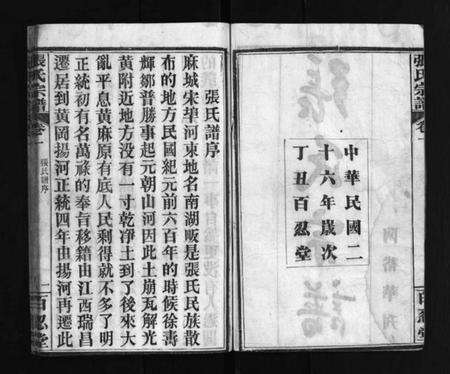 張氏宗譜
卷一
中華民國二
十六年歲次
丁丑百忍堂
百忍堂
張氏譜序
麻城宋埠河東地名南湖畈是張氏民族散
布的地方民國紀元前六百年的時候徐壽
輝鄒普勝事起元朝山河因此土崩瓦解光
黃附近地方没有一寸乾淨土到了後來大
亂平息黃麻原有底人民剩得就不多了明
正統初有名萬祿的奉旨移籍由江西瑞昌
遷居到黃岡揚河正統四年由揚河再遷此
張氏宗譜
卷一
張氏譜序
一
百忍堂